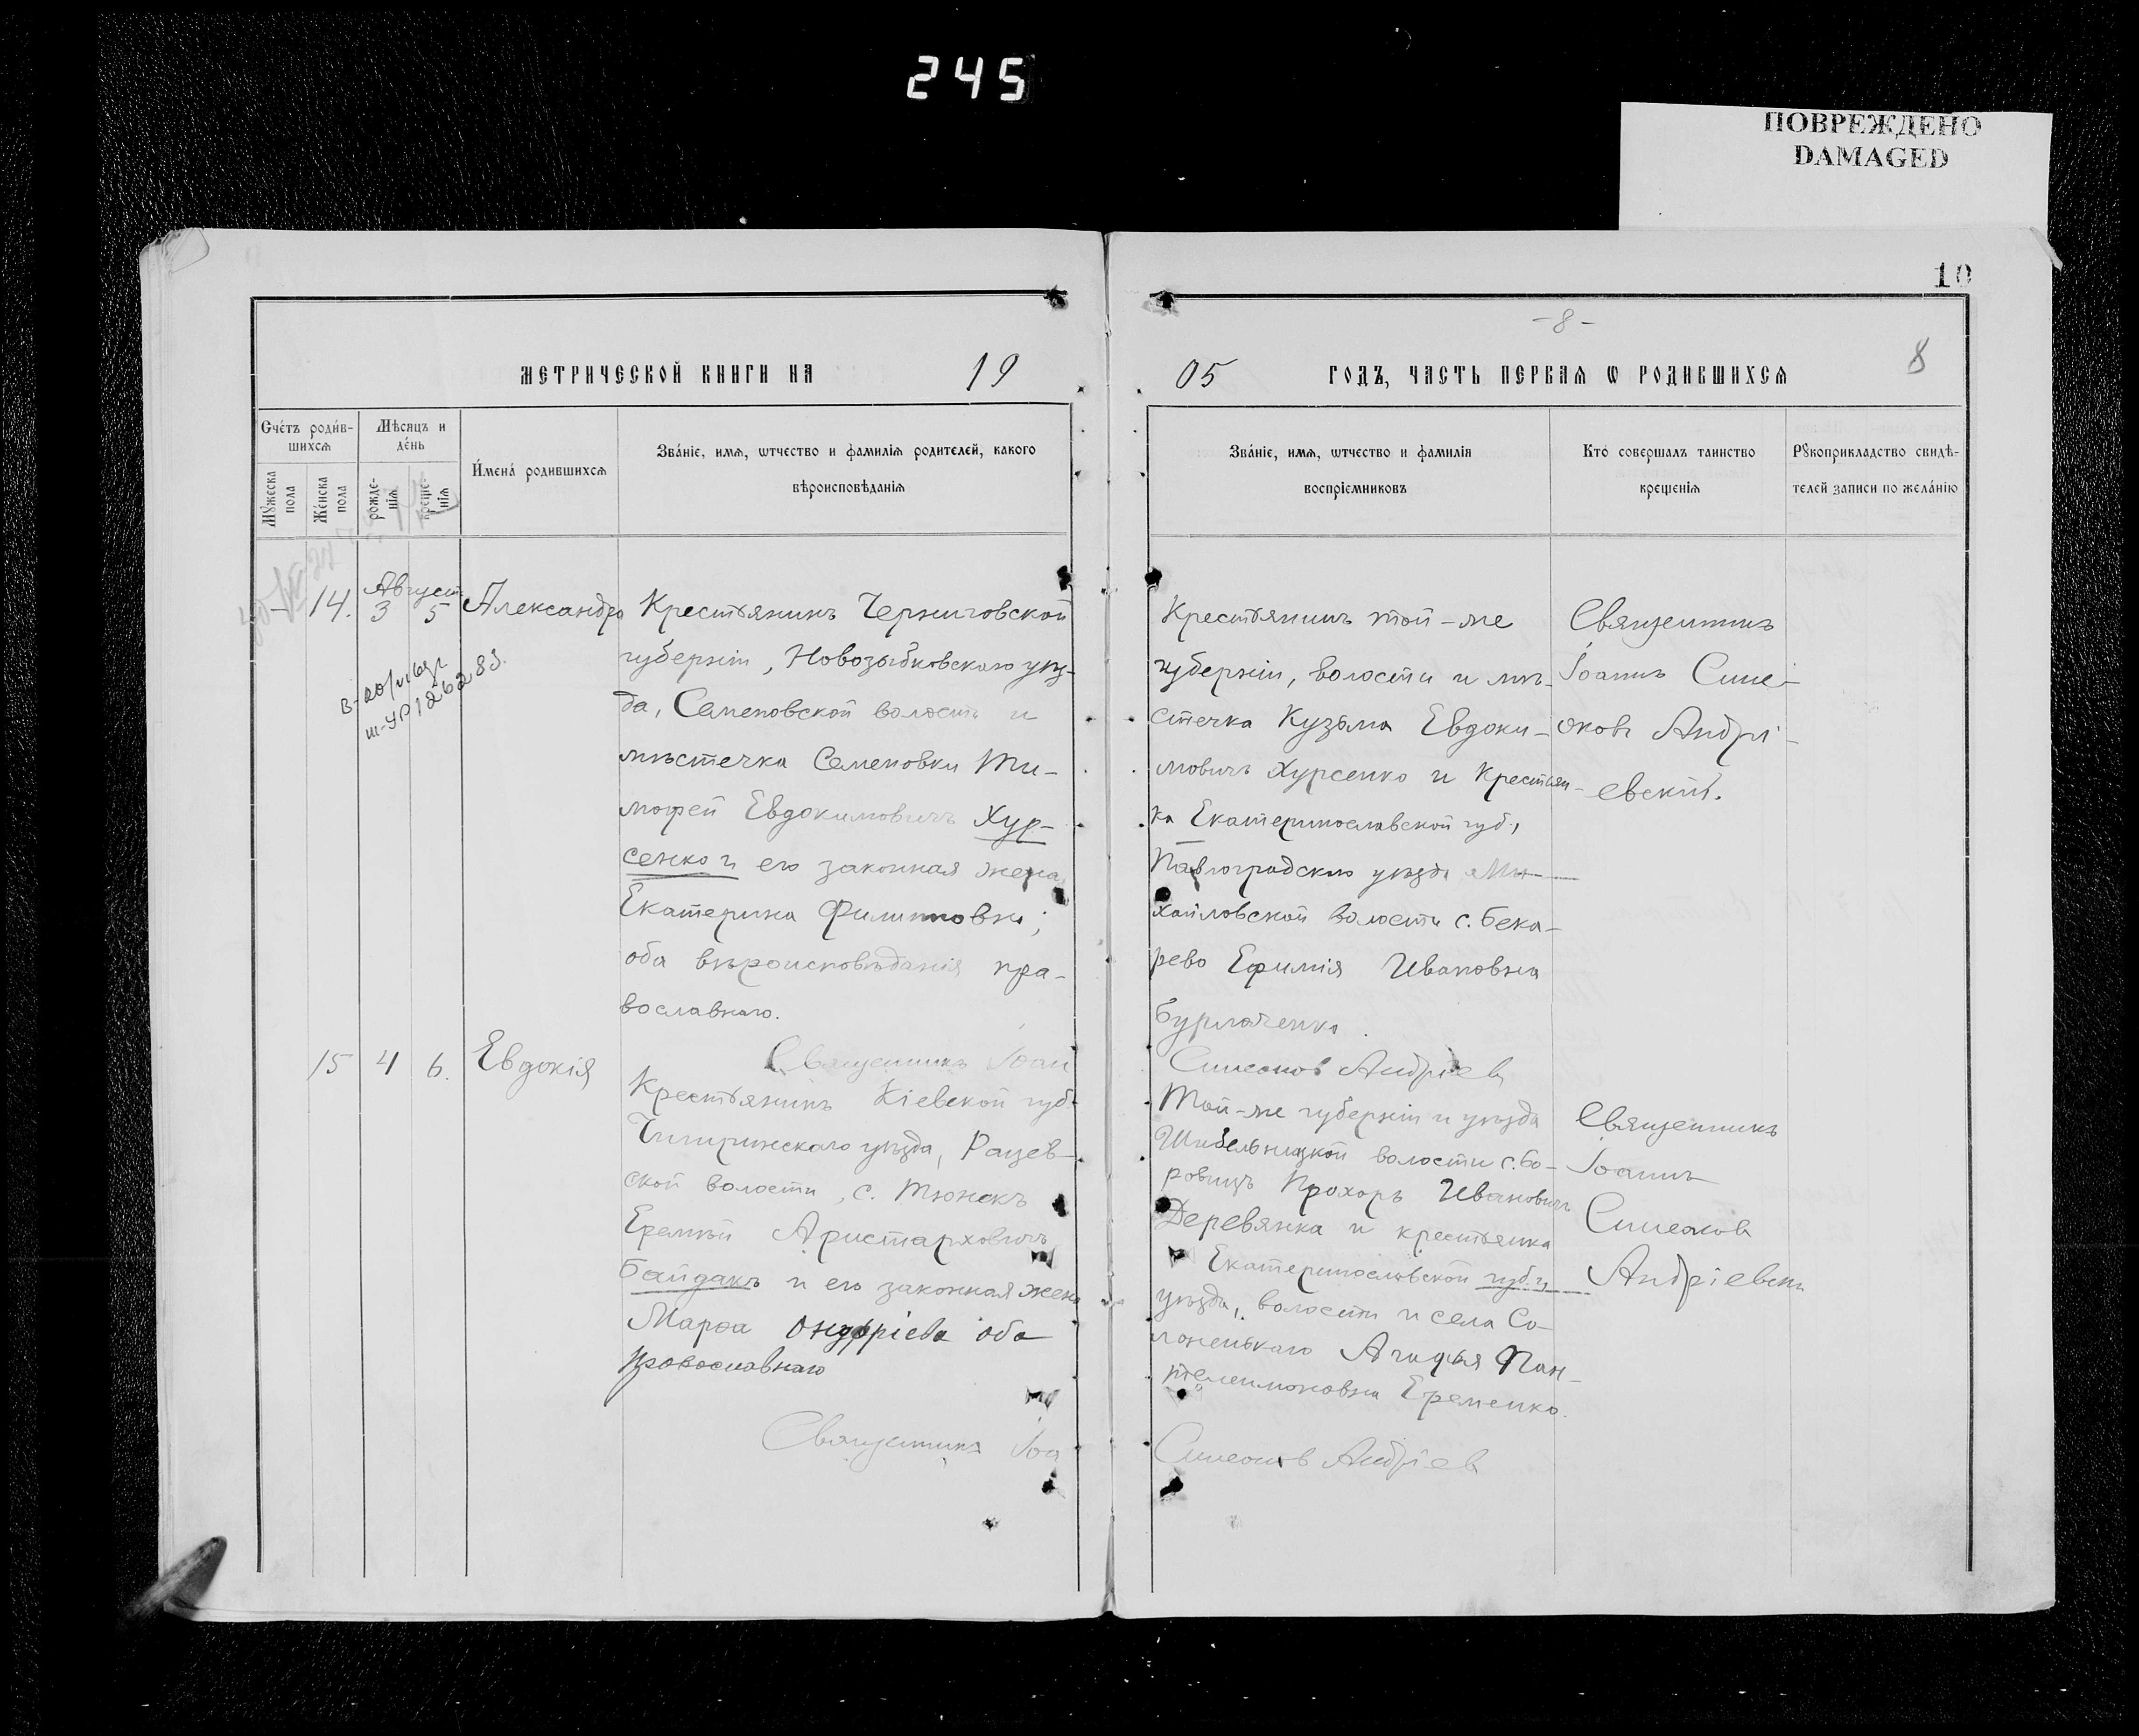 245
ПОВРЕЖДЕНО
DAMAGED
10
-8-
8
МЕТРИЧЕСКОЙ КНИГИ НА 19
05 ГОДЪ, ЧАСТЬ ПЕРВАЯ Ѡ РОДИВШИХСЯ
Счéтъ роди́в-
шихсѧ
Мѣсяцъ и
де́нь
Мꙋжеска
пола
Же́нска
пола
рожде-
нїѧ
креще-
нїѧ
И́мена́ родившихсѧ
Зва́нїе, имѧ, ѿтчество и фамилїѧ родителей, какого
вѣроисповѣданїѧ
Зва́нїе, имѧ, ѿтчество и фамилїѧ
воспрїемниковъ
Кто́ совершалъ таинство
крещенїѧ
Рꙋкоприкладство свидѣ-
телей записи по жела́нїю
Август
- 14. 3 5 Александра
Крестьянинъ Черниговской
губерніи, Новозыбковскаго уѣз-
да, Семеновской волости и
мѣстечка Семеновки Ти-
мофей Евдокимовичъ Хур-
сенко и его законная жена
Екатерина Филипповна;
оба вѣроисповѣданія пра-
вославнаго.
Священникъ Іоан
Крестьянинъ той-же
губерніи, волости и мѣ-
стечка Кузьма Евдоки-
мовичъ Хурсенко и крестьян-
ка Екатеринославской губ.,
Павлоградскаго уѣзда Ми-
хайловской волости с. Бека-
рево Ефимія Ивановна
Бурлаченко.
Симеоновъ Андріев
Священникъ
Іоаннъ Симе-
оновъ Андрі-
евскій.
126283.
15 4 6. Евдокія
Крестьянинъ Кіевской губ.
Чигиринскаго уѣзда, Рацев-
ской волости, с. Тюнекъ
Еремѣй Аристарховичъ
Байдакъ и его законная жена
Марѳа Онуфріева оба
православнаго
Священникъ Іоа
Той-же губерніи и уѣзда
Шабельницкой волости с. Бо-
ровицъ Прохоръ Ивановичъ
Деревянка и крестьянка
Екатеринославской губ. и
уѣзда, волости и села Со-
лоненькаго Агафья Пан-
телеимоновна Еременко.
Симеоновъ Андріев
Священникъ
Іоаннъ
Симеонов
Андріевскі